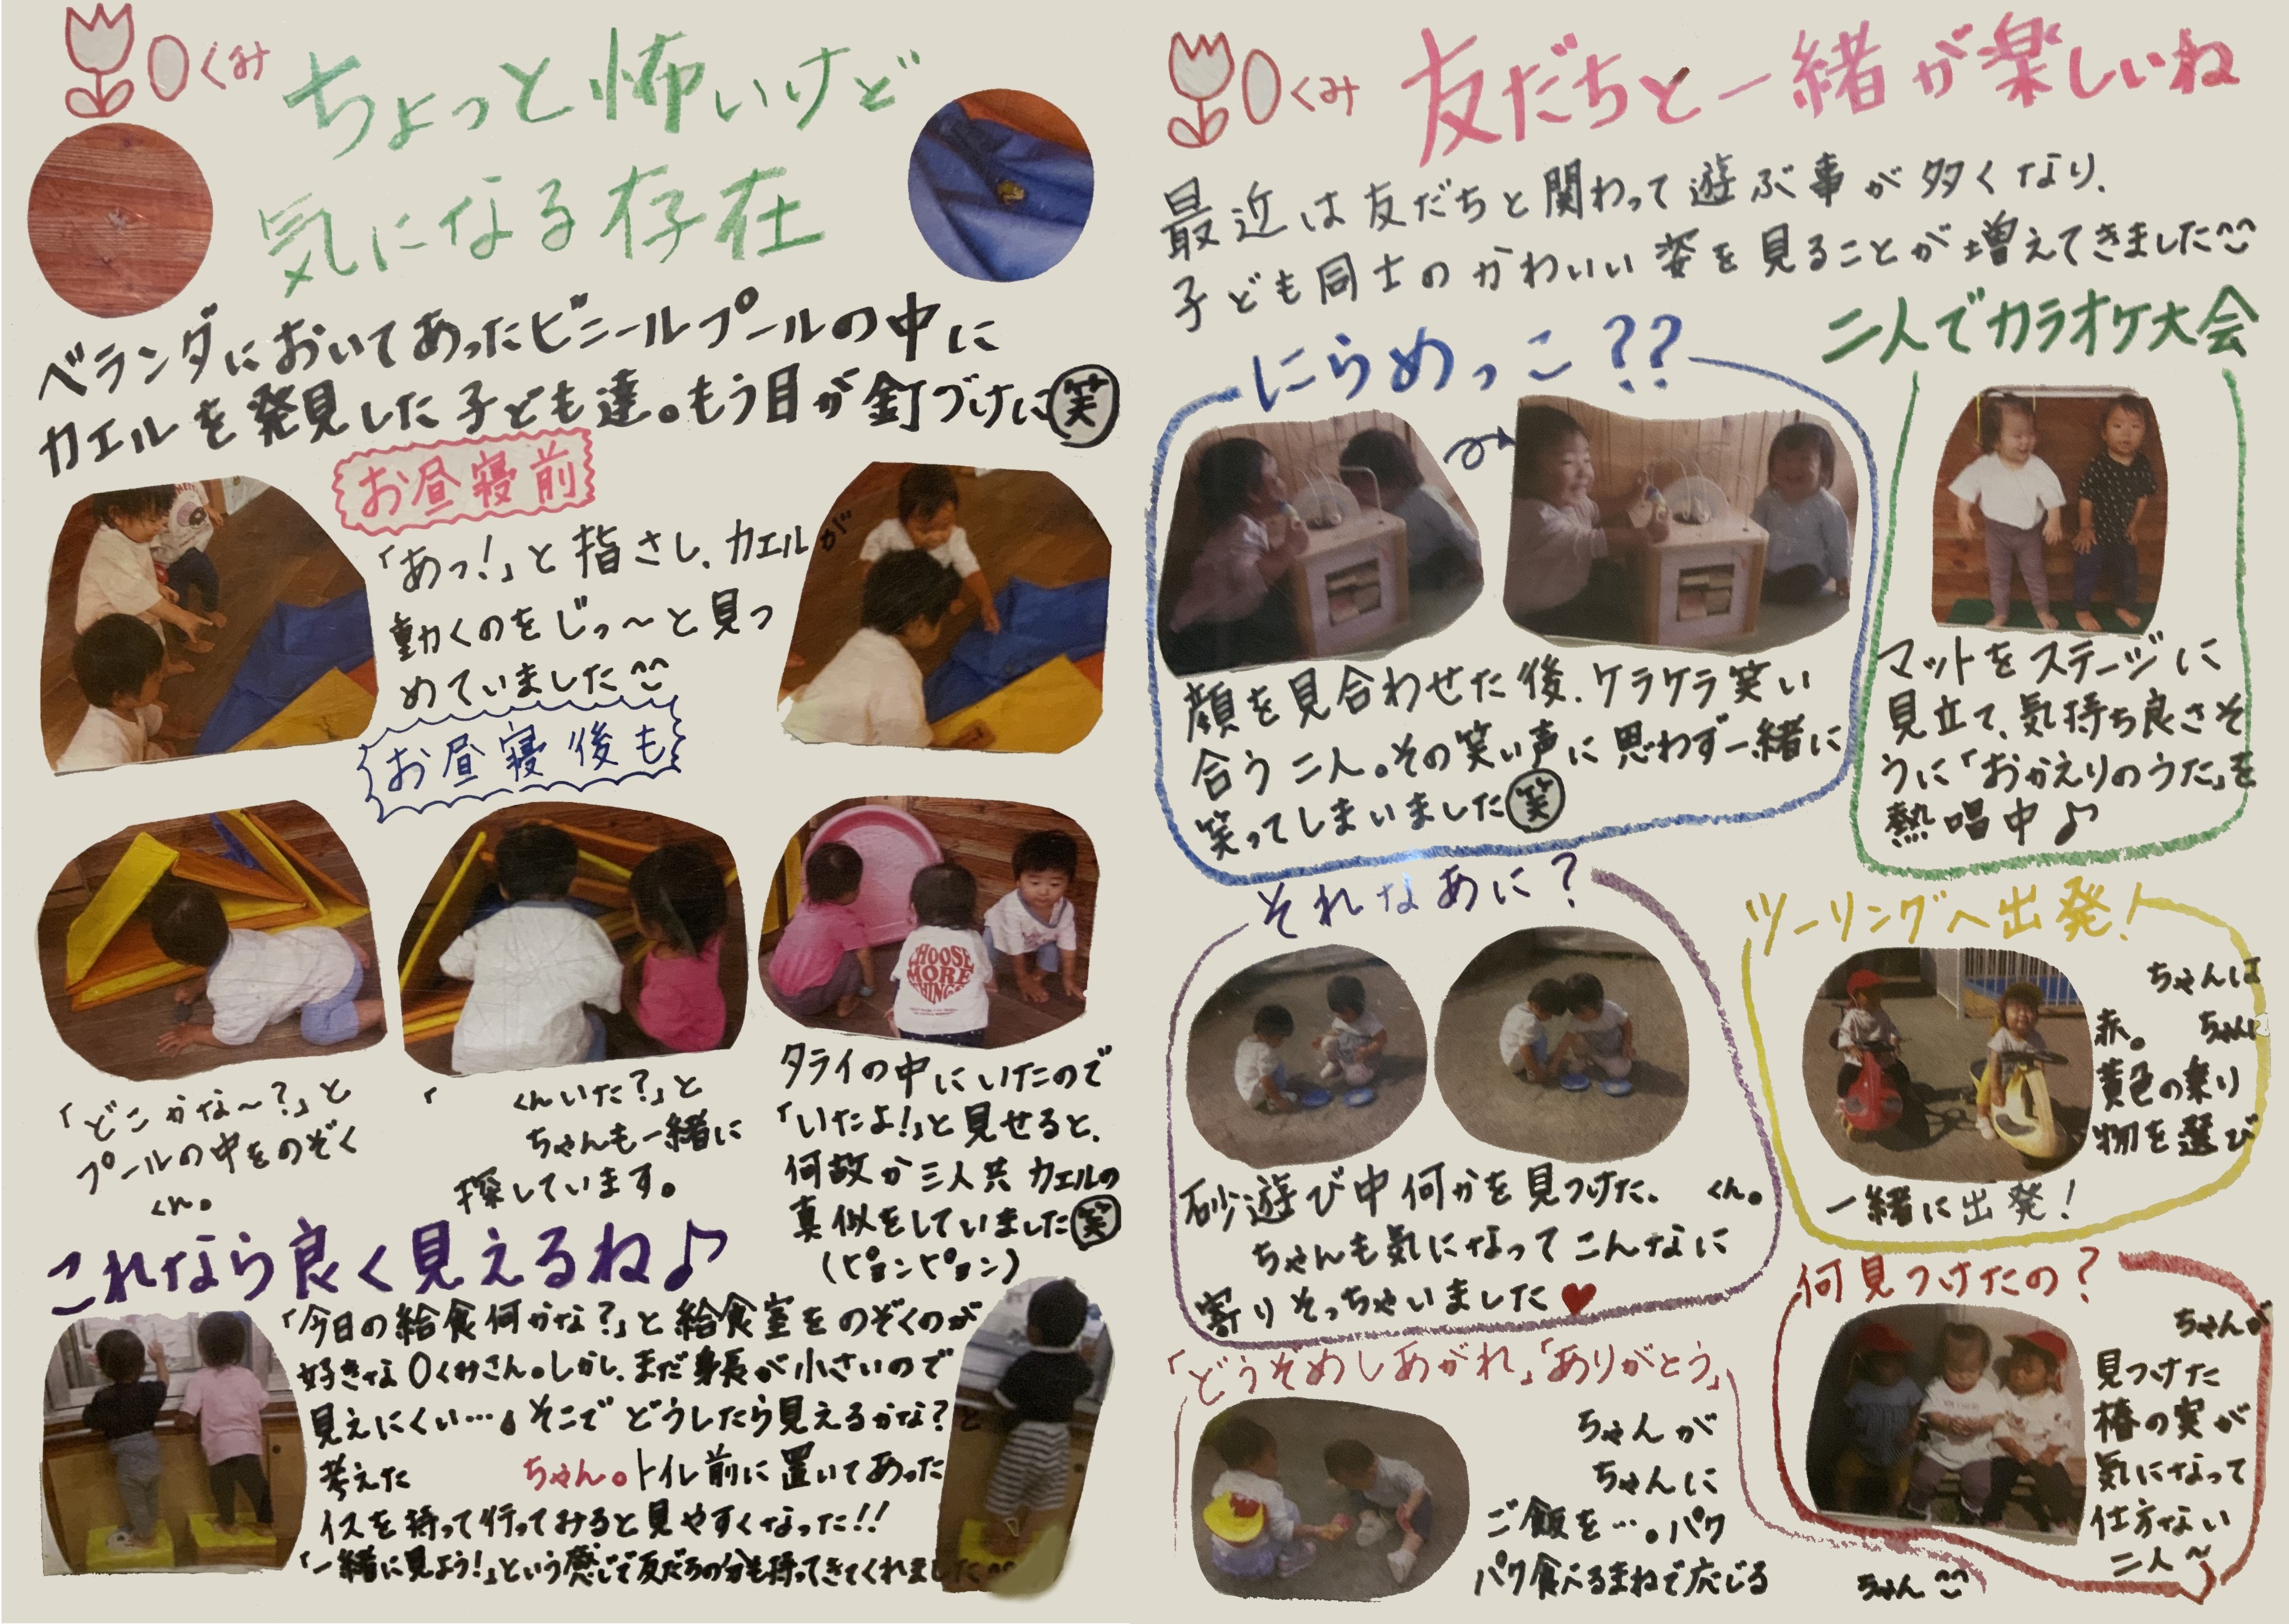 0くみ
ちょっと怖いけど
気になる存在
ベランダにおいてあったビニールプールの中に
カエルを発見した子ども達。もう目が釘づけに㊗笑
お昼寝前
「あっ!」と指さし、カエルが
動くのをじっ〜と見つ
めていました^^
お昼寝後も
「どこかな〜?」と
プールの中をのぞく
くん。
「 くんいた?」と
ちゃんも一緒に
探しています。
CHOOSE
MORE
THINGS
タライの中にいたので
「いたよ!」と見せると、
何故か三人共カエルの
真似をしていました笑
(ピョンピョン)
これなら良く見えるね♪
「今日の給食何かな?」と給食室をのぞくのが
好きな0くみさん。しかし、まだ身長が小さいので
見えにくい…。そこでどうしたら見えるかな?と
考えた ちゃん。トイレ前に置いてあった
イスを持って行ってみると見やすくなった!!
「一緒に見よう!」という感じで友だちの分も持ってきてくれました^^
0くみ
友だちと一緒が楽しいね
最近は友だちと関わって遊ぶ事が多くなり、
子ども同士のかわいい姿を見ることが増えてきました^^
にらめっこ??
顔を見合わせた後、ケラケラ笑い
合う二人。その笑い声に思わず一緒に
笑ってしまいました笑
二人でカラオケ大会
マットをステージに
見立て、気持ち良さそ
うに「おかえりのうた」を
熱唱中♪
それなあに?
砂遊び中何かを見つけた、 くん。
ちゃんも気になってこんなに
寄りそっちゃいました♥
ツーリングへ出発!
ちゃんは
赤。 ちゃんは
黄色の乗り
物を選び
一緒に出発!
「どうぞめしあがれ」「ありがとう」
ちゃんが
ちゃんに
ご飯を…。パク
パク食べるまねで応じる
ちゃん^^
何見つけたの?
ちゃんが
見つけた
椿の実が
気になって
仕方ない
二人〜